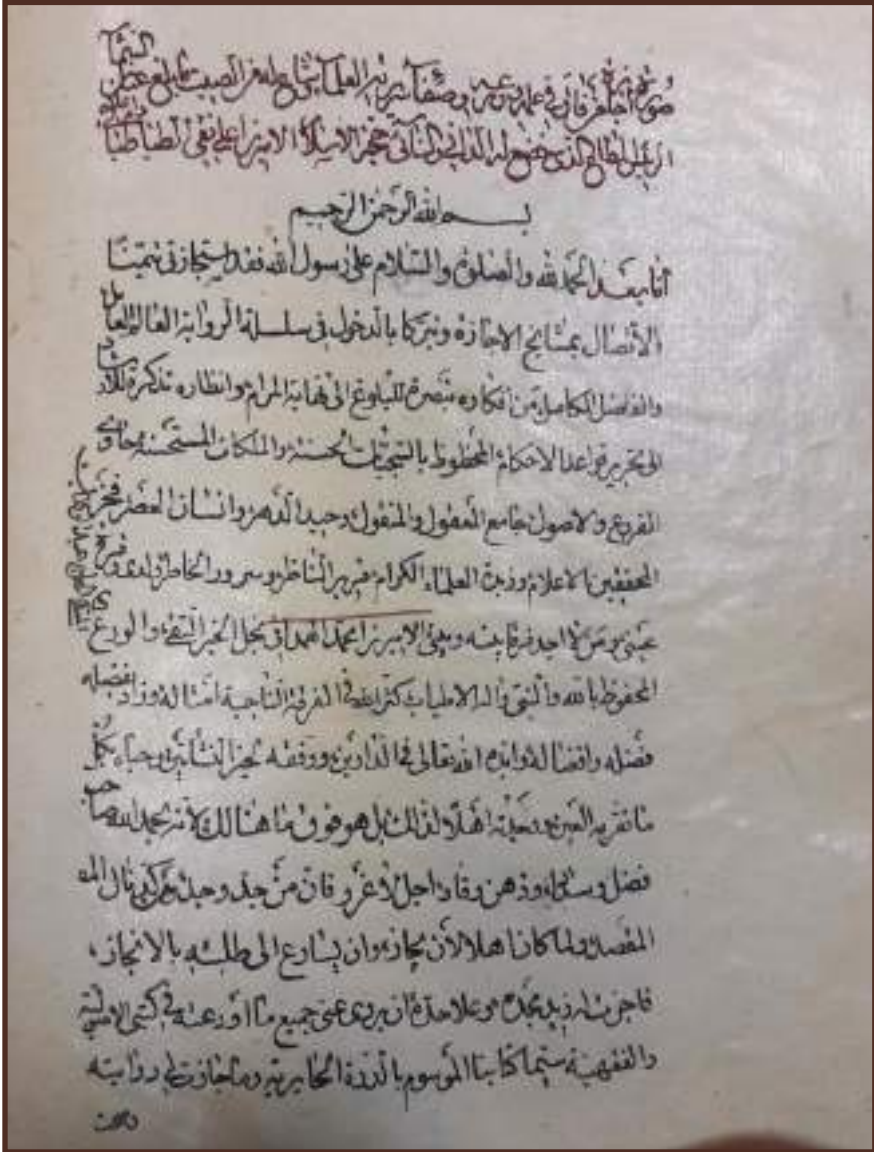 صورة ما اجازه في علمه وصفاته بين العلماء شاع له من الصيت ما بلغ عظمه السما
الرئيس المطاع الذي خضع له الداني والنائي حجة الاسلام الاميرزا علي نقي الطباطبائي
بسم الله الرحمن الرحيم
اما بعد الحمد لله والصلوة والسلام على رسول الله فقد استجازني تيمنا
الاتصال بمشايخ الاجازة وتبركا بالدخول في سلسلة الرواية العالم العامل
والفاضل الكامل من افكاره تبصرة للبلوغ الى نهاية المرام وانظاره تذكرة للارشاد
الى تحرير قواعد الاحكام المحظوظ بالسجيات الحسنة والملكات المستحسنة حاوي
الفروع والاصول جامع المعقول والمنقول وحيد الدهر وانسان العصر فخر
المحققين الاعلام وزبدة العلماء الكرام قرير الناظر وسرور الخاطر ولدي وقرة
عيني ومن لا اجد فرقا بينه وبيني الاميرزا محمد الهمداني نجل الخير التقي والورع
المحفوظ بالله والنقي والد الاطياب كثر الله في الفرقة الناجية امثاله وزاد بفضله
فضله وافضاله وايده الله تعالى في الدارين ووفقه لخير النشأتين وحباه بكل
ما تقر به العين وجدته اهلا لذلك بل هو فوق ما هنالك لانه بحمد الله صاحب
فضل وذهن وقاد اجل لا غرو فان من جد وجد كي نال
المقصد ولما كان اهلا لان يجاز وان يسارع الى طلبته بالانجاز،
فاجزت له زيد مجده وعلا جده ان يروي عني جميع ما اودعته في كتبي الاصولية
والفقهية سيما كتابنا الموسوم بالدرة الحايرية وما جازت لي روايته